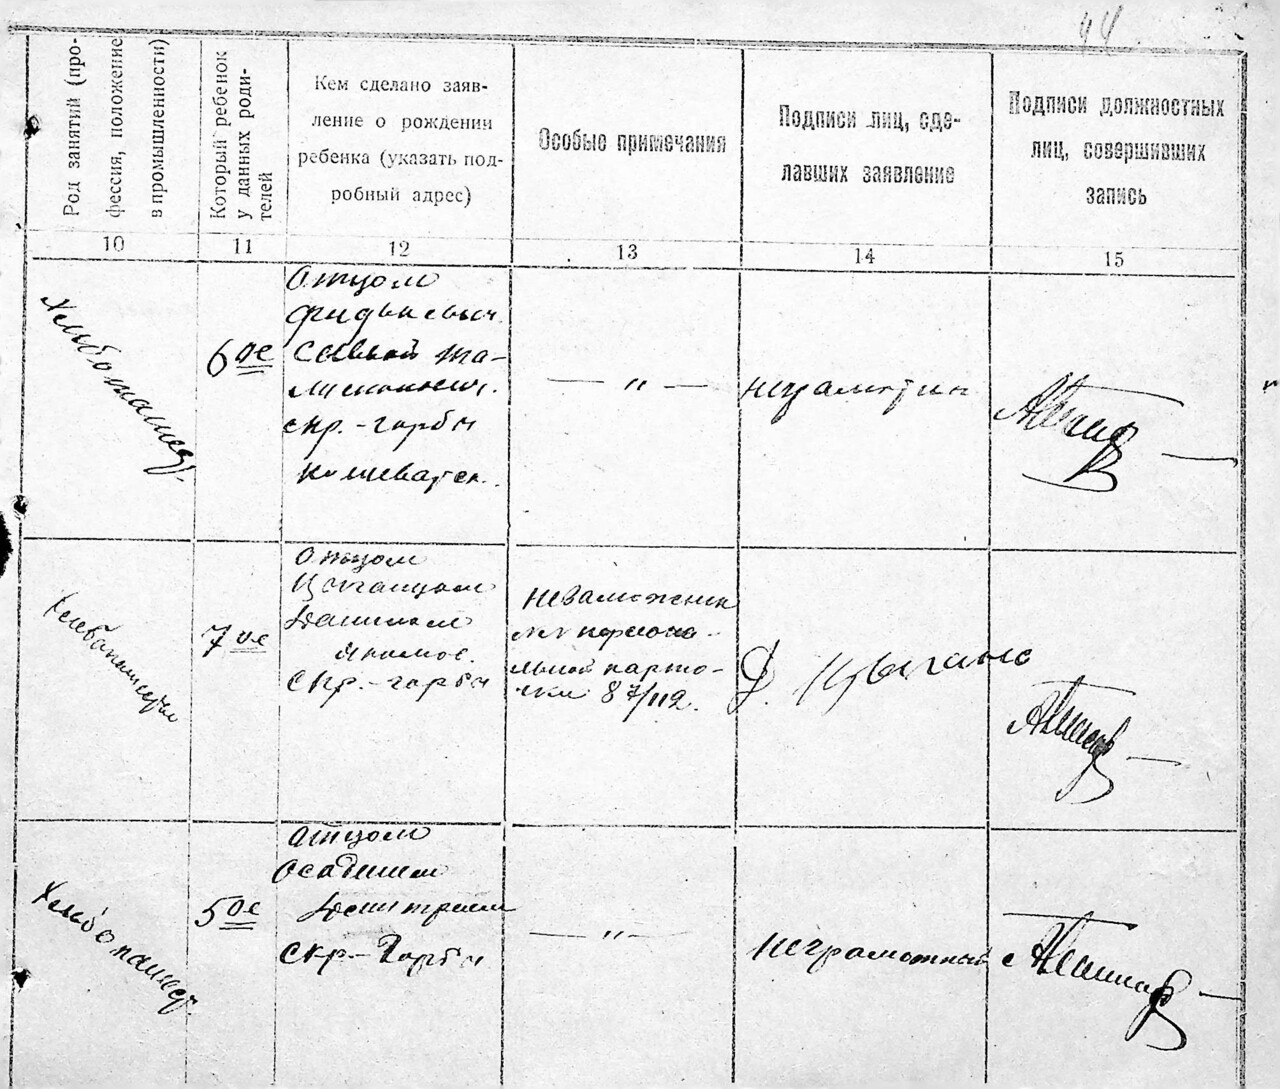 44
Род занятий (про-
фессия, положение
в промышленности)
Который ребенок
у данных роди-
телей
Кем сделано заяв-
ление о рождении
ребенка (указать под-
робный адрес)
Особые примечания
Подписи лиц, сде-
лавших заявление
Подписи должностных
лиц, совершивших
запись
10
11
12
13
14
15
Хлебопашец.
6 ое
Отцом
скр.-горбы
— " —
неграмотин
7 ое
отцом
Цыганцом
Данилом
Якимов.
скр.-горбы
незаможник
по персона-
льной карто-
чки 87/112.
Д. Цыганс
Хлебопашец.
5 ое
отцом
Осадчим
Дмитрием
скр-Горбы
— " —
неграмотный